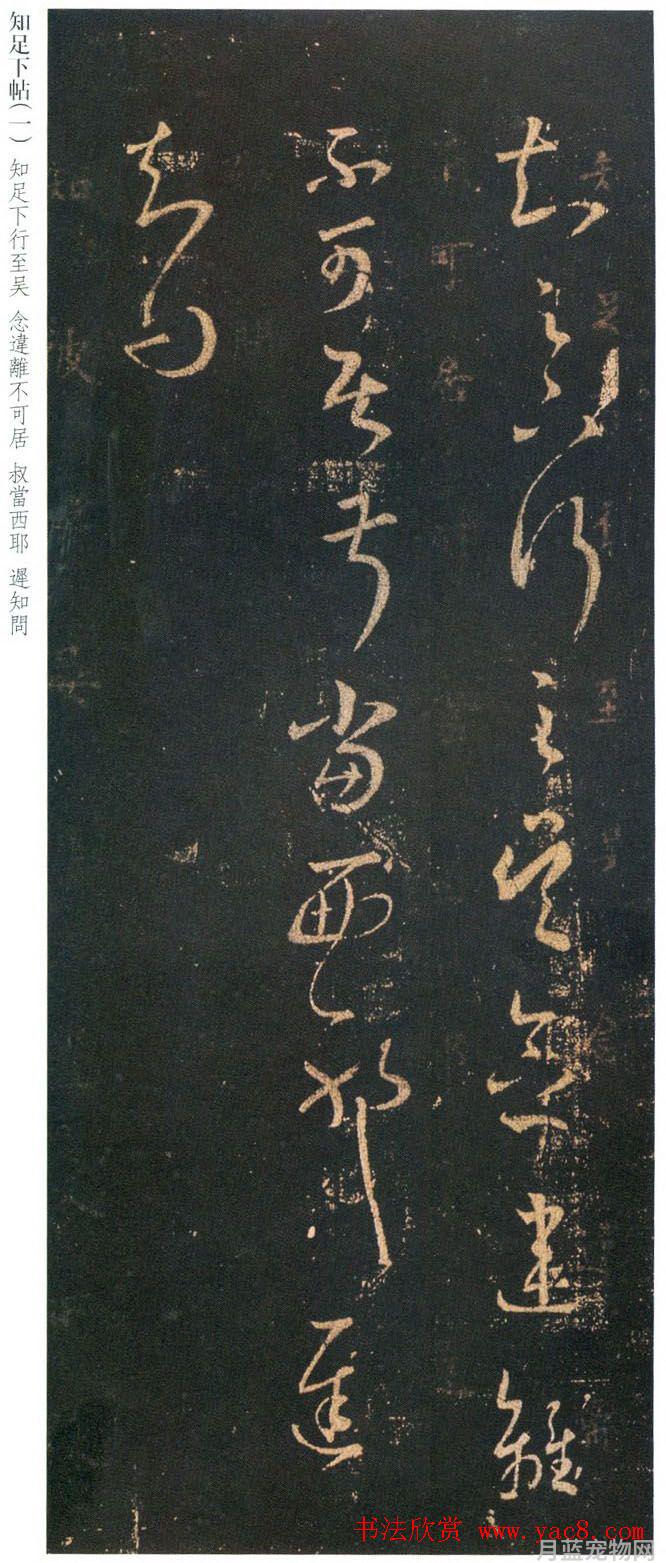 知足下行至吴念違離
不可居叔當西耶遲
知問
知足下帖(一) 知足下行至吴 念違離不可居 叔當西耶 遲知問
书法欣赏 www.yac8.com
月蓝宠物网